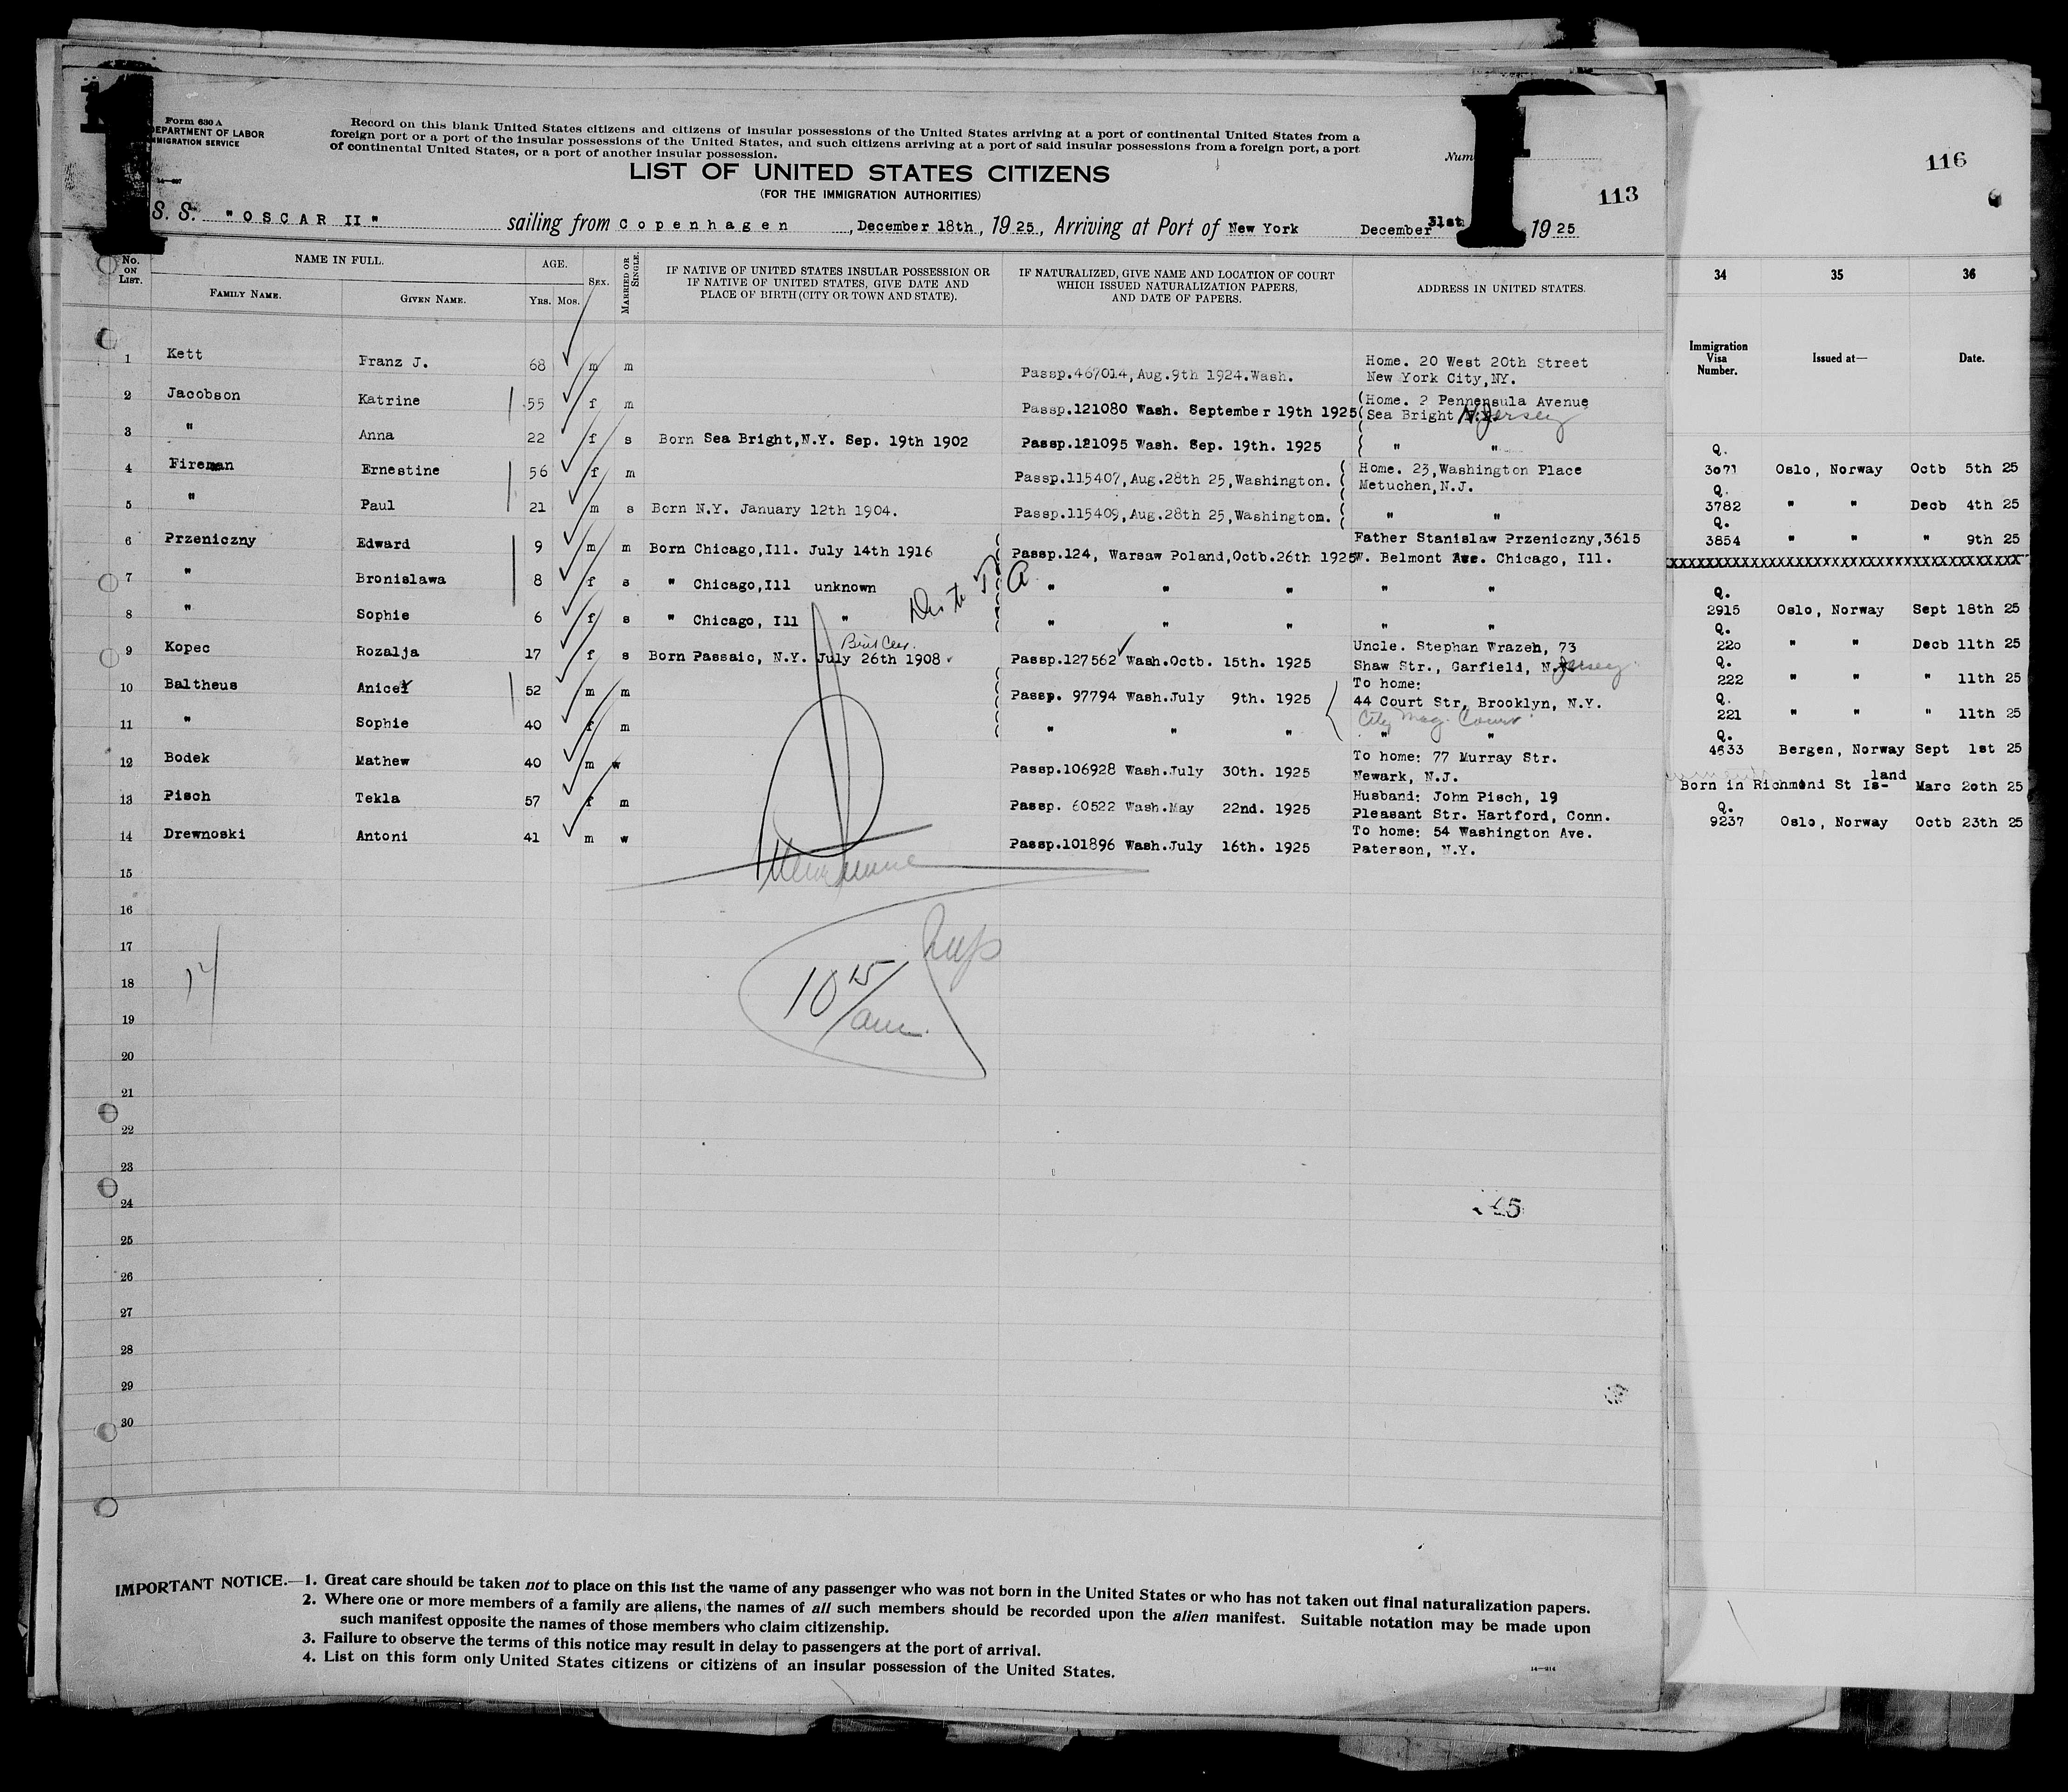 Form 630 A
DEPARTMENT OF LABOR
IMMIGRATION SERVICE
Record on this blank United States citizens and citizens of insular possessions of the United States arriving at a port of continental United States from a
foreign port or a port of the insular possessions of the United States, and such citizens arriving at a port of said insular possessions from a foreign port, a port
of continental United States, or a port of another insular possession.
LIST OF UNITED STATES CITIZENS
(FOR THE IMMIGRATION AUTHORITIES)
113
S. S. "OSCAR II" sailing from Copenhagen, December 18th, 1925, Arriving at Port of New York December 31st 1925
No. ON LIST. NAME IN FULL. AGE. SEX. MARRIED OR SINGLE. IF NATIVE OF UNITED STATES INSULAR POSSESSION OR IF NATIVE OF UNITED STATES, GIVE DATE AND PLACE OF BIRTH (CITY OR TOWN AND STATE). IF NATURALIZED, GIVE NAME AND LOCATION OF COURT WHICH ISSUED NATURALIZATION PAPERS, AND DATE OF PAPERS. ADDRESS IN UNITED STATES.
FAMILY NAME. GIVEN NAME. YRS. MOS.
1 Kett Franz J. 68 m m Passp.467014, Aug.9th 1924.Wash. Home. 20 West 20th Street
New York City,NY.
2 Jacobson Katrine 55 f m Passp.121080 Wash. September 19th 1925 (Home. 2 Pennensula Avenue
(Sea Bright N.Jersey
3 " Anna 22 f s Born Sea Bright,N.Y. Sep. 19th 1902 Passp.121095 Wash. Sep. 19th. 1925 " "
4 Fireman Ernestine 56 f m Passp.115407,Aug.28th 25,Washington. Home. 23,Washington Place
Metuchen,N.J.
5 " Paul 21 m s Born N.Y. January 12th 1904. Passp.115409,Aug.28th 25,Washington. " "
6 Przeniczny Edward 9 m m Born Chicago,Ill. July 14th 1916 Passp.124, Warsaw Poland,Octb.26th 1925 Father Stanislaw Przeniczny,3615
W. Belmont Ave. Chicago, Ill.
7 " Bronislawa 8 f s " Chicago,Ill unknown " " " " "
8 " Sophie 6 f s " Chicago, Ill " " " " " "
9 Kopec Rozalja 17 f s Born Passaic, N.Y. July 26th 1908 Passp.127562 Wash.Octb. 15th. 1925 Uncle. Stephan Wrazen, 73
Shaw Str., Garfield, N.Jersey
10 Baltheus Anicet 52 m m Passp. 97794 Wash.July 9th. 1925 To home:
44 Court Str, Brooklyn, N.Y.
City Mag. Court
11 " Sophie 40 f m " " " " "
12 Bodek Mathew 40 m w Passp.106928 Wash.July 30th. 1925 To home: 77 Murray Str.
Newark, N.J.
13 Pisch Tekla 57 f m Passp. 60522 Wash.May 22nd. 1925 Husband: John Pisch, 19
Pleasant Str. Hartford, Conn.
14 Drewnoski Antoni 41 m w Passp.101896 Wash.July 16th. 1925 To home: 54 Washington Ave.
Paterson, N.Y.
15
16
17
18
19
20
21
22
23
24
25
26
27
28
29
30
14
10 15/am.
IMPORTANT NOTICE.—1. Great care should be taken not to place on this list the name of any passenger who was not born in the United States or who has not taken out final naturalization papers.
2. Where one or more members of a family are aliens, the names of all such members should be recorded upon the alien manifest. Suitable notation may be made upon
such manifest opposite the names of those members who claim citizenship.
3. Failure to observe the terms of this notice may result in delay to passengers at the port of arrival.
4. List on this form only United States citizens or citizens of an insular possession of the United States.
116
34 35 36
Immigration Visa Number. Issued at— Date.
Q.
3071 Oslo, Norway Octb 5th 25
Q.
3782 " " Decb 4th 25
Q.
3854 " " " 9th 25
Q.
2915 Oslo, Norway Sept 18th 25
Q.
220 " " Decb 11th 25
Q.
222 " " " 11th 25
Q.
221 " " " 11th 25
Q.
4633 Bergen, Norway Sept 1st 25
Born in Richmond St Is-land Marc 20th 25
Q.
9237 Oslo, Norway Octb 23th 25